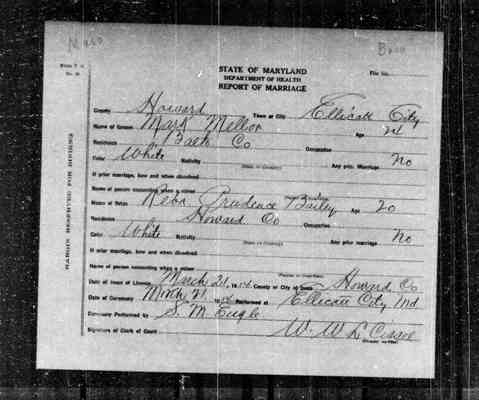 STATE OF MARYLAND
DEPARTMENT OF HEALTH
REPORT OF MARRIAGE
File No.
County Howard Town or City Ellicott City
Name of Groom Mark Mellor Age 24
Residence Balto Co Occupation
Color White Nativity (State or Country) Any prior Marriage No
If prior marriage, how and when dissolved
Name of person consenting when a minor
Name of Bride Reba Prudence Bailey Age 20
Residence Howard Co Occupation
Color White Nativity (State or Country) Any prior marriage No
If prior marriage, how and when dissolved
Name of person consenting when a minor
Date of Issue of License March 21, 1914 County or City of Issue Howard Co
Date of Ceremony March 21, 1914 Performed at Ellicott City Md
Ceremony Performed by S. M. Engle
Signature of Clerk of Court W. W. L. Cissel
MARGIN RESERVED FOR BINDING